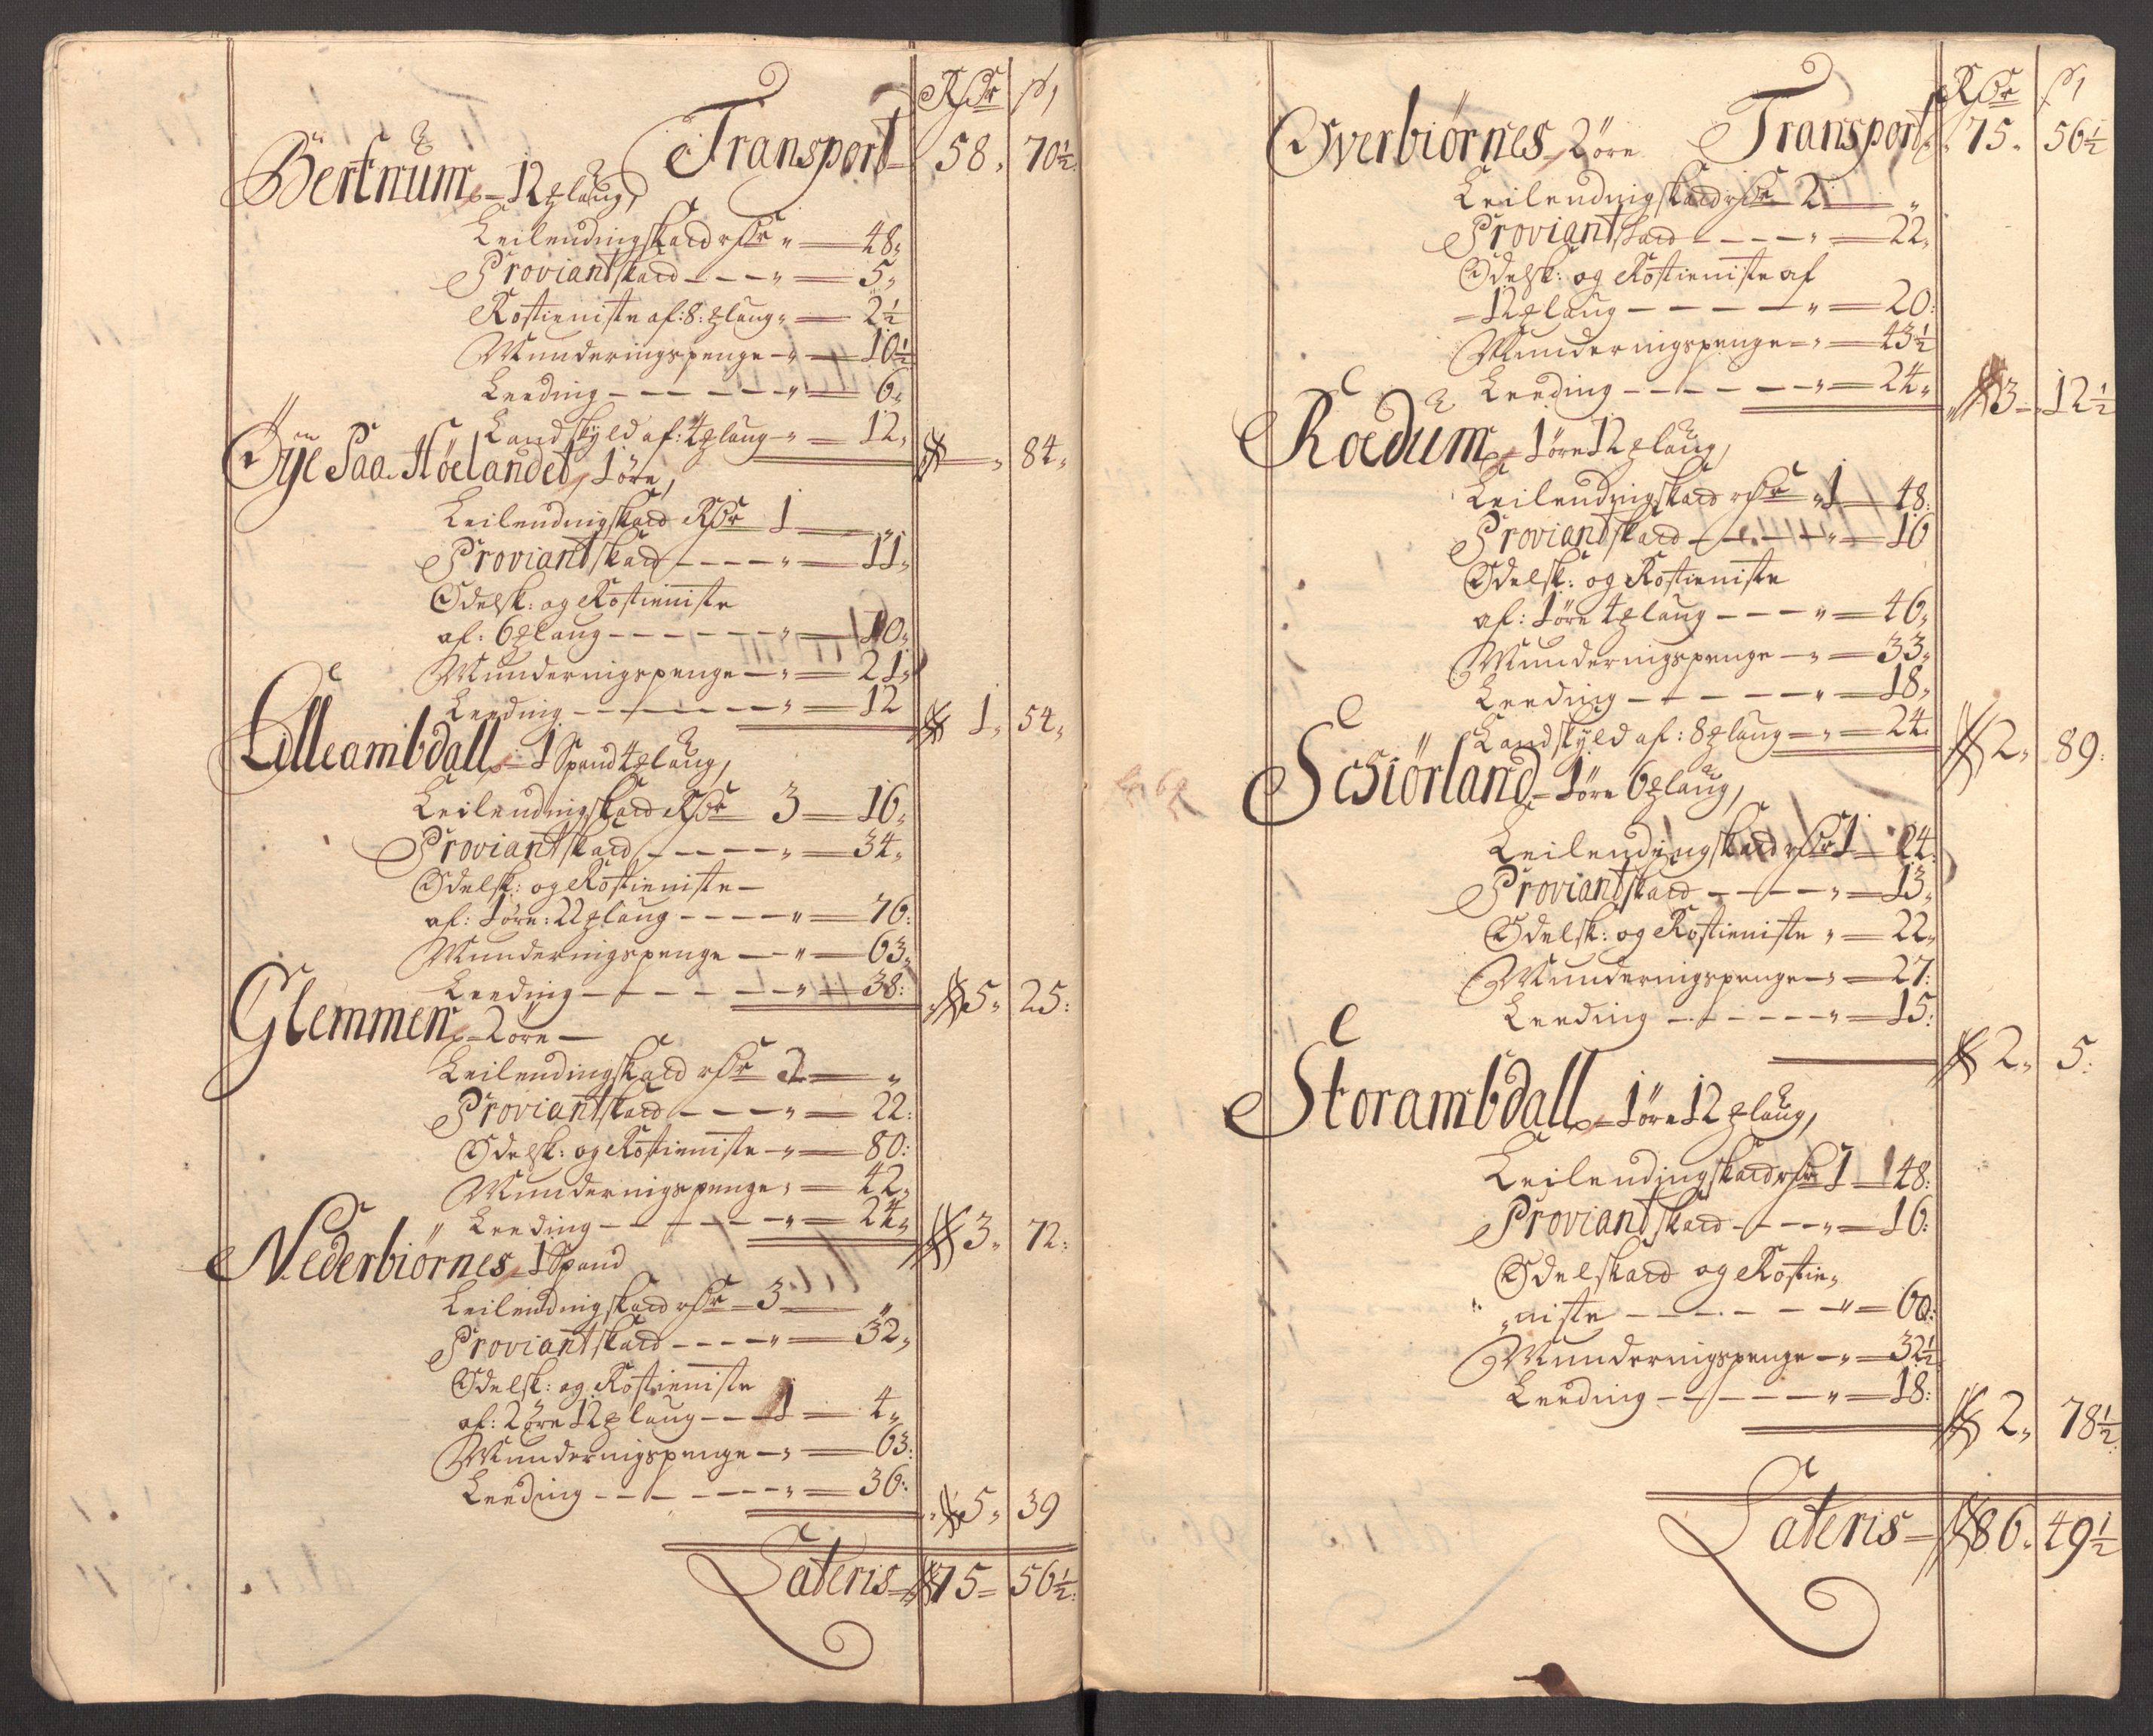 Rdr ß
Transport 58. 70½
Bertnum 12 ℔ laug,
Leilendingskatt rdr " 48.
Proviantskatt - - - " 5.
Rostieniste af: 8: ℔ laug " 2½
Munderingspenge - " 10½
Leeding - - - - - " 6.
Landskyld af: 4 ℔ laug - " 12. " 84.
Øÿe Paa Høelandet, 1 öre,
Leilendingskatt Rdr 1 "
Proviantskatt - - - " 11.
Odelsk: og Rostieniste
af: 6 ℔ laug - - - - - " 10.
Munderingspenge - " 21.
Leeding - - - - - " 12 1. 54.
Lilleambdall 1 Spand 4 ℔ laug,
Leilendingskatt Rdr 3 16.
Proviantskatt - - - - " 34.
Odelsk: og Rostieniste -
af: 1 öre: 22 ℔ laug - - - " 76:
Munderingspenge - " 63.
Leeding - - - - - " 38: 5. 25:
Glemmen 2 öre -
Leilendingskatt rdr 2 "
Proviantskatt - - - " 22:
Odelsk: og Rostieniste - " 80:
Munderingspenge " 42.
" Leeding - - - - - " 24. 3. 72:
Nederbiörnes 1 Spand
Leilendingskatt rdr 3 "
Proviantskatt - - - " 32.
Odelsk: og Rostieniste
af: 2 öre 12 ℔ laug - - 1 4.
Munderingspenge - " 63:
Leeding - - - - - " 36: 5. 39
Lateris 75 56½:
Rdr ß
Overbiörnes 2 öre Transport 75. 56½
Leilendingskatt rdr 2 "
Proviantskatt - - - - " 22.
Odelsk: og Rostieniste af
12 ℔ laug - - - - - " 20:
Munderingspenge - " 43½
Leeding - - - - - " 24. 3 12½
Roedum 1 öre 12 ℔ laug,
Leilendingskatt rdr 1 48:
Proviandskatt - - - - " 16
Odelsk: og Rostieniste
af: 1 öre 4 ℔ laug - - - " 46.
Munderingspenge - " 33.
Leeding - - - - - " 18.
Landskyld af: 8 ℔ laug " 24. 2. 89:
Sesiörland 1 öre 6 ℔ laug,
Leilendingskatt rdr 1 24.
Proviantskatt - - - - " 13.
Odelsk: og Rostieniste " 22.
Munderingspenge " 27:
Leeding - - - - - " 15:
2. 5:
Storambdall 1 öre 12 ℔ laug,
Leilendingskatt rdr 1 48:
Proviantskatt - - - " 16:
Odelskatt og Rostie-
"niste - - - - - " 60:
Munderingspenge - " 32½
Leeding - - - - - " 18:
2. 78½:
Lateris 86. 49½